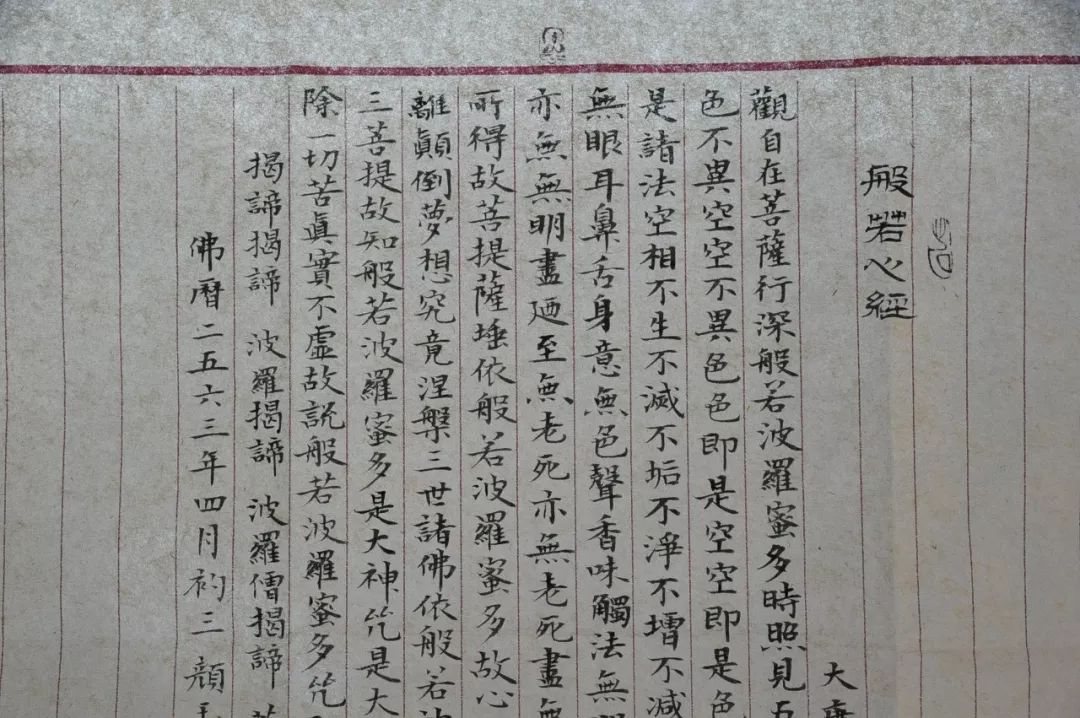 般若心經
大唐
觀自在菩薩行深般若波羅蜜多時照見五
色不異空空不異色色即是空空即是色
是諸法空相不生不滅不垢不淨不增不減
無眼耳鼻舌身意無色聲香味觸法無
亦無無明盡廼至無老死亦無老死盡無
所得故菩提薩埵依般若波羅蜜多故心
離顛倒夢想究竟涅槃三世諸佛依般若波
三菩提故知般若波羅蜜多是大神咒是大
除一切苦眞實不虛故說般若波羅蜜多咒
揭諦揭諦 波羅揭諦 波羅僧揭諦 菩
佛曆二五六三年四月初三 顏